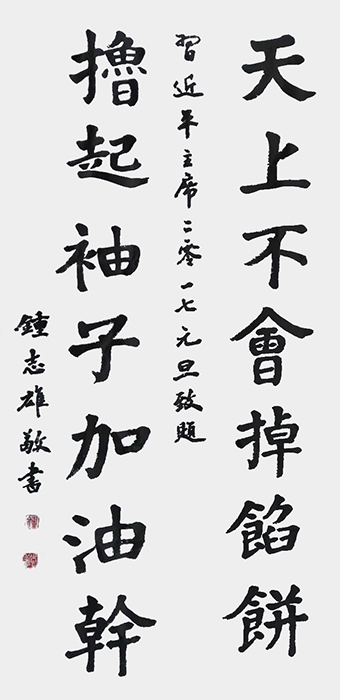 天上不會掉餡餅
擼起袖子加油幹
習近平主席二零一七元旦致題
鍾志雄敬書